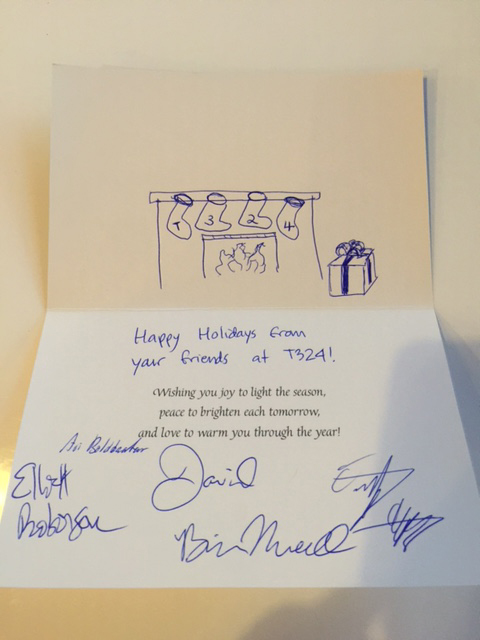 T 3 2 4
Happy Holidays from
your friends at T324!
Wishing you joy to light the season,
peace to brighten each tomorrow,
and love to warm you through the year!
Ari
Elliott
David